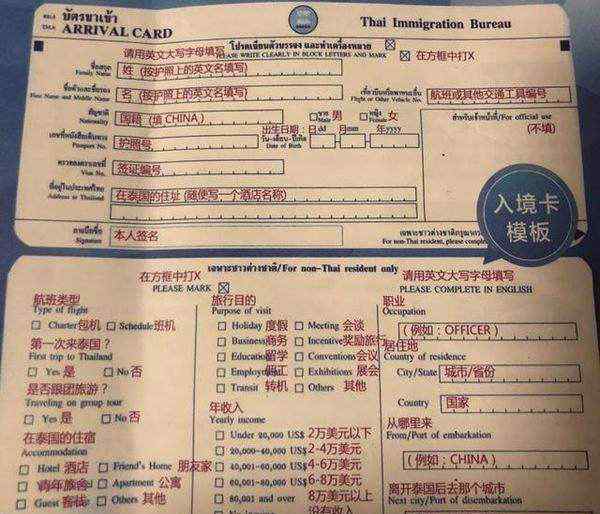 บัตรขาเข้า
ARRIVAL CARD
Thai Immigration Bureau
请用英文大写字母填写
โปรดเขียนตัวบรรจง และทำเครื่องหมาย ☒
PLEASE WRITE CLEARLY IN BLOCK LETTERS AND MARK ☒
在方框中打X
ชื่อสกุล
Family Name
姓 (按护照上的英文名填写)
ชื่อตัวและชื่อรอง
First Name and Middle Name
名 (按护照上的英文名填写)
เที่ยวบินหรือพาหนะอื่น
Flight or Other Vehicle No.
航班或其他交通工具编号
สัญชาติ
Nationality
国籍 (填 CHINA)
ชาย
Male 男
หญิง
Female 女
สำหรับเจ้าหน้าที่/For official use
(不填)
เลขที่หนังสือเดินทาง
Passport No.
护照号
出生日期: 日dd 月mm 年yyyy
วัน-เดือน-ปีเกิด
Date of Birth
ตรวจลงตราเลขที่
Visa No.
签证编号
ที่อยู่ในประเทศไทย
Address in Thailand
在泰国的住址 (随便写一个酒店名称)
入境卡
模板
ลายมือชื่อ
Signature
本人签名
เฉพาะชาวต่างชาติ
For non-Thai resident, please
เฉพาะชาวต่างชาติ/For non-Thai resident only
在方框中打X
PLEASE MARK ☒
请用英文大写字母填写
PLEASE COMPLETE IN ENGLISH
航班类型
Type of flight
Charter包机 Schedule班机
第一次来泰国?
First trip to Thailand
Yes 是 No 否
是否跟团旅游?
Traveling on group tour
Yes 是 No 否
在泰国的住宿
Accommodation
Hotel 酒店 Friend's Home 朋友家
青年旅舍 Apartment 公寓
Guest Others 其他
旅行目的
Purpose of visit
Holiday 度假 Meeting 会谈
Business商务 Incentive奖励旅行
Education留学 Conventions会议
Employment Exhibitions 展会
Transit 转机 Others 其他
年收入
Yearly income
Under 20,000 US$ 2万美元以下
20,000-40,000 US$ 2-4万美元
40,001-60,000 US$ 4-6万美元
60,001-80,000 US$ 6-8万美元
80,001 and over 8万美元以上
No income 没有收入
职业
Occupation
(例如:OFFICER)
居住地
Country of residence
City/State 城市/省份
Country 国家
从哪里来
From/Port of embarkation
(例如:CHINA)
离开泰国后去那个城市
Next city/Port of disembarkation